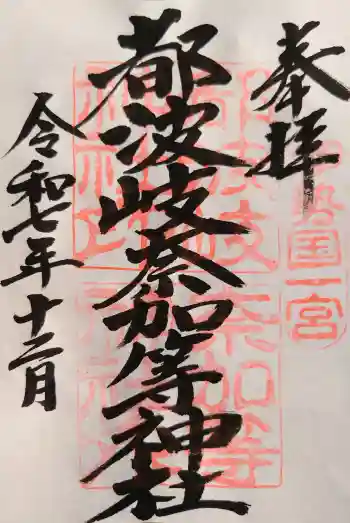 奉拝
伊勢国一宮
都波岐奈加等神社
令和七年十二月